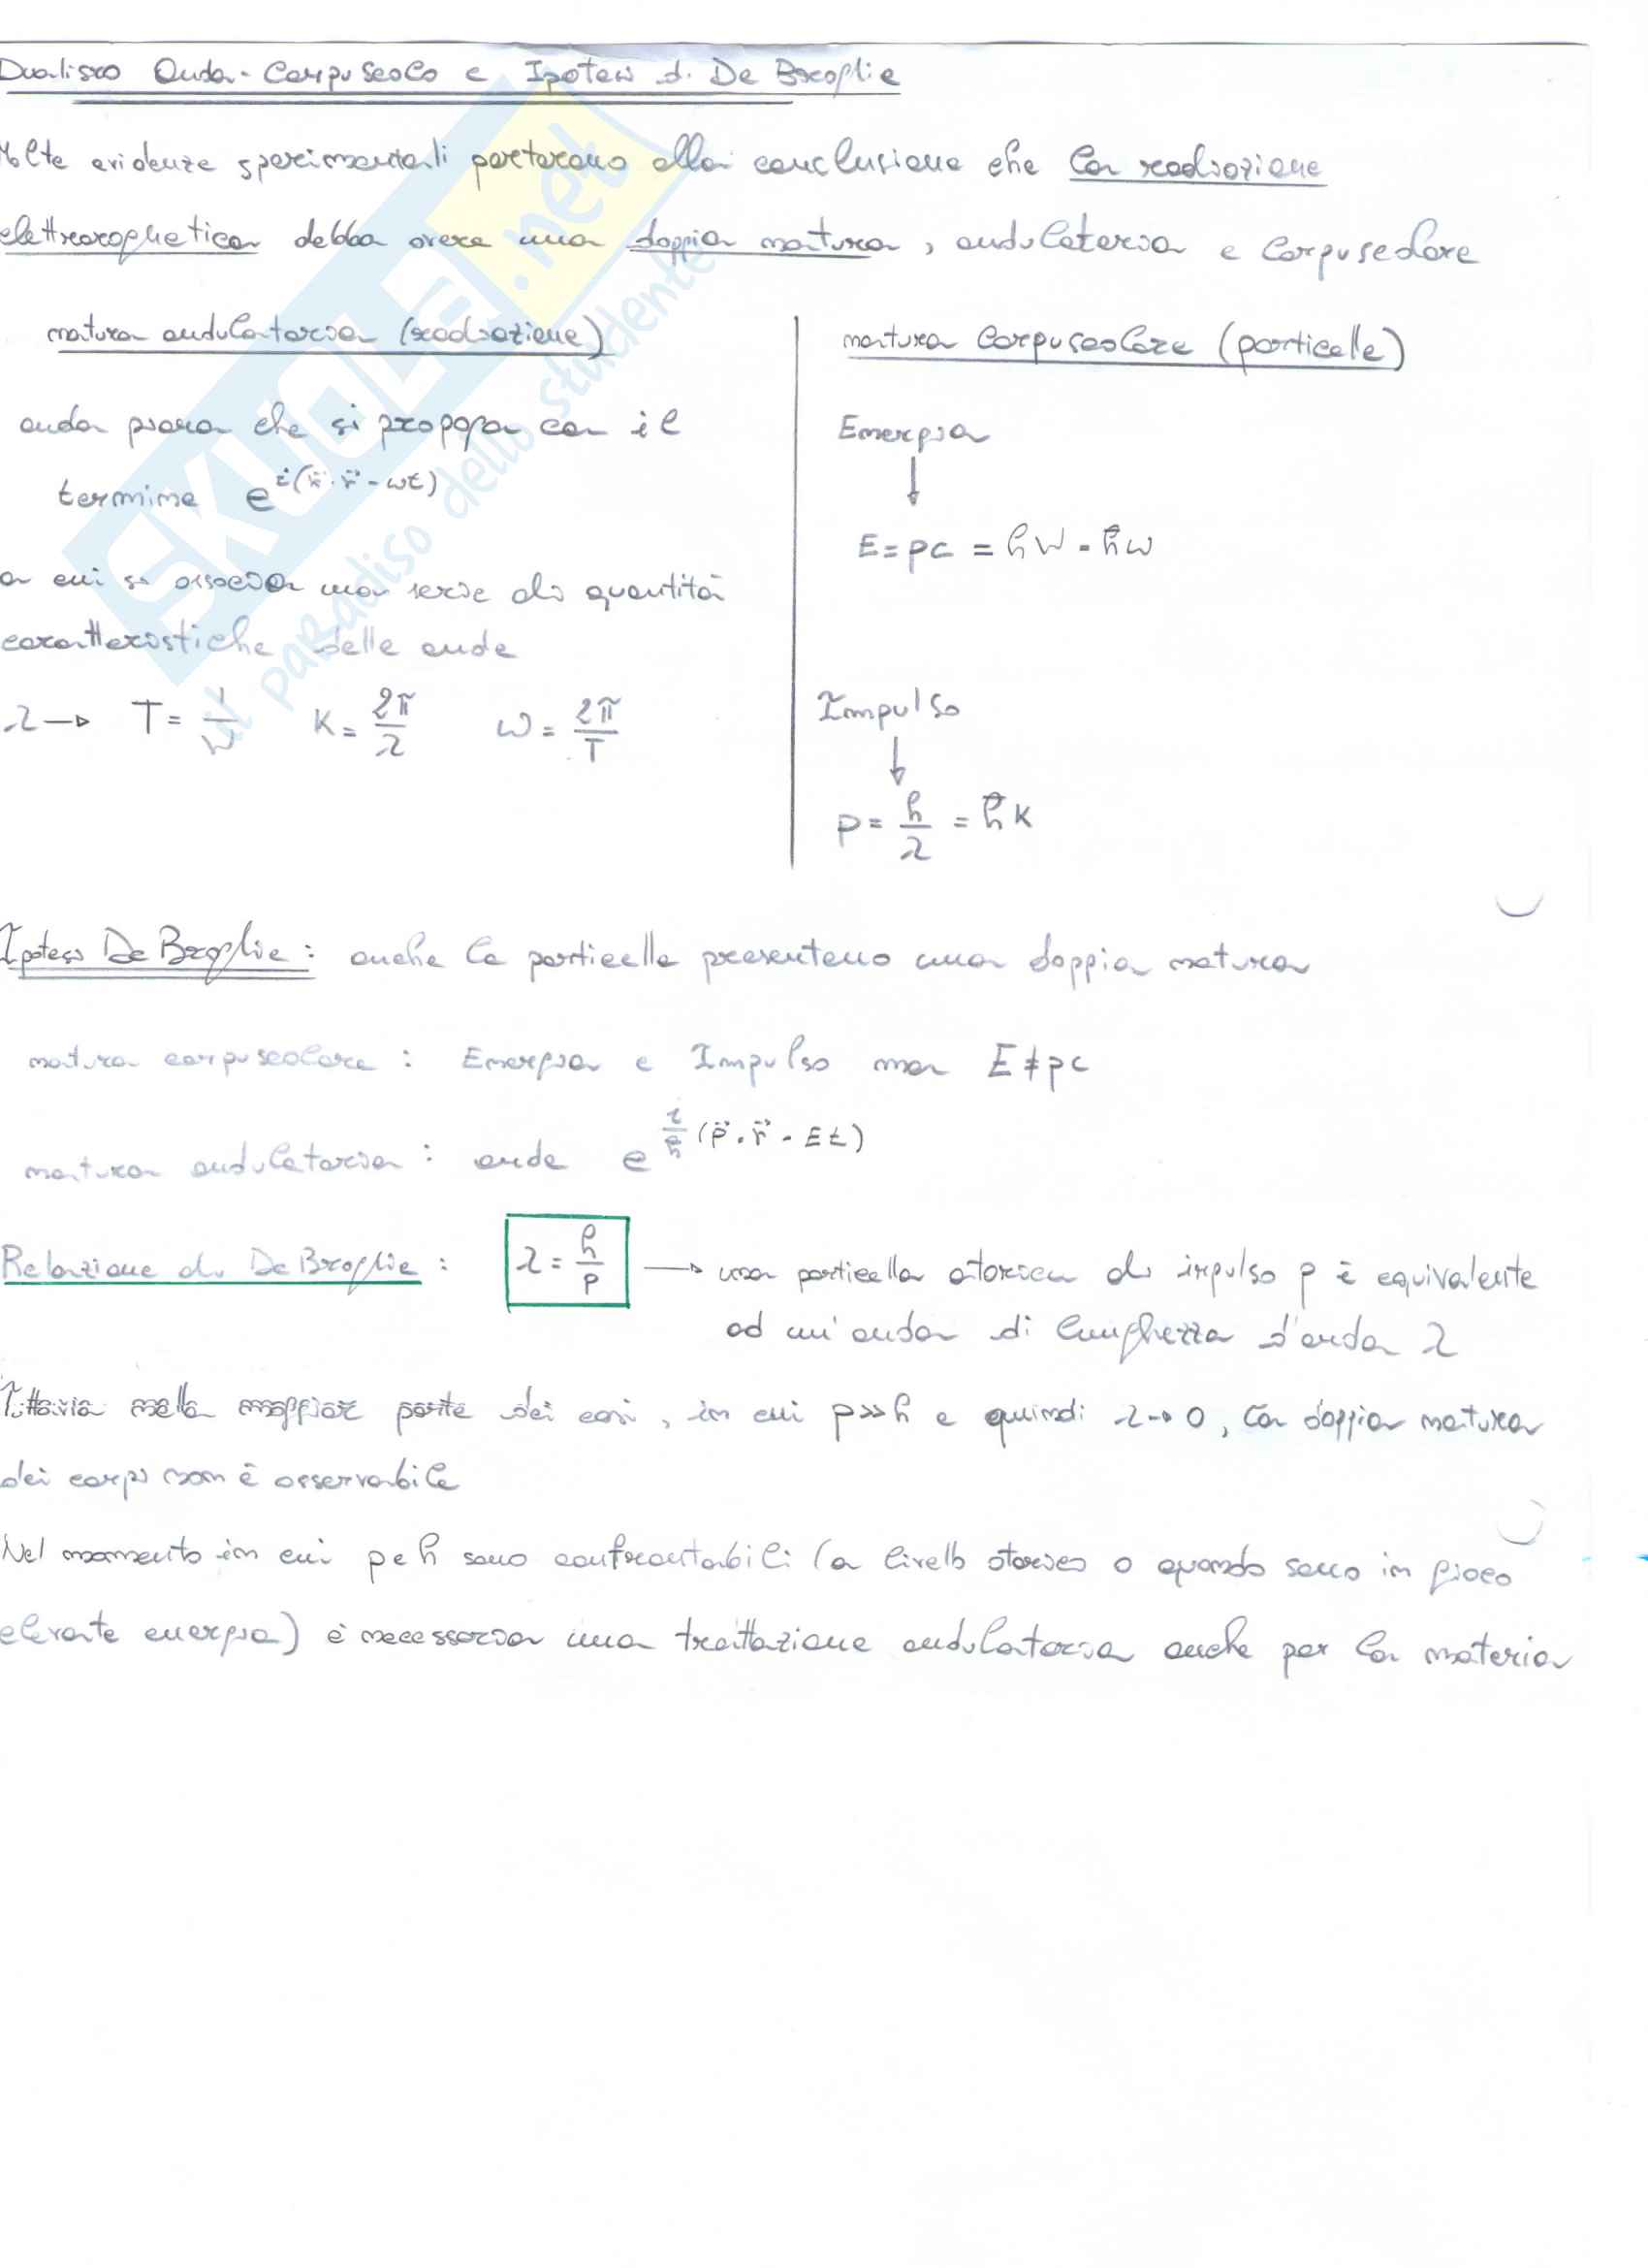 Dualismo Onda-Corpuscolo e Ipotesi di De Broglie
Molte evidenze sperimentali portarono alla conclusione che la radiazione
elettromagnetica debba avere una doppia natura, ondulatoria e corpuscolare
natura ondulatoria (radiazione)
onda piana che si propaga con il
termine e^{i(k⃗·r⃗-ωt)}
a cui si associa una serie di quantità
caratteristiche delle onde
λ → T = 1/ν K = 2π/λ ω = 2π/T
natura corpuscolare (particelle)
Energia
↓
E = pc = hν = ħω
Impulso
↓
p = h/λ = ħK
Ipotesi De Broglie: anche le particelle presentano una doppia natura
natura corpuscolare: Energia e Impulso ma E ≠ pc
natura ondulatoria: onda e^{i/ħ (p⃗·r⃗ - Et)}
Relazione di De Broglie: λ = h/p → una particella atomica di impulso p è equivalente
ad un'onda di lunghezza d'onda λ
Tuttavia nella maggior parte dei casi, in cui p>>h e quindi λ→0, la doppia natura
dei corpi non è osservabile
Nel momento in cui p e h sono confrontabili (a livello atomico o quando sono in gioco
elevate energie) è necessaria una trattazione ondulatoria anche per la materia
SKUOLA.net
il paradiso dello studente